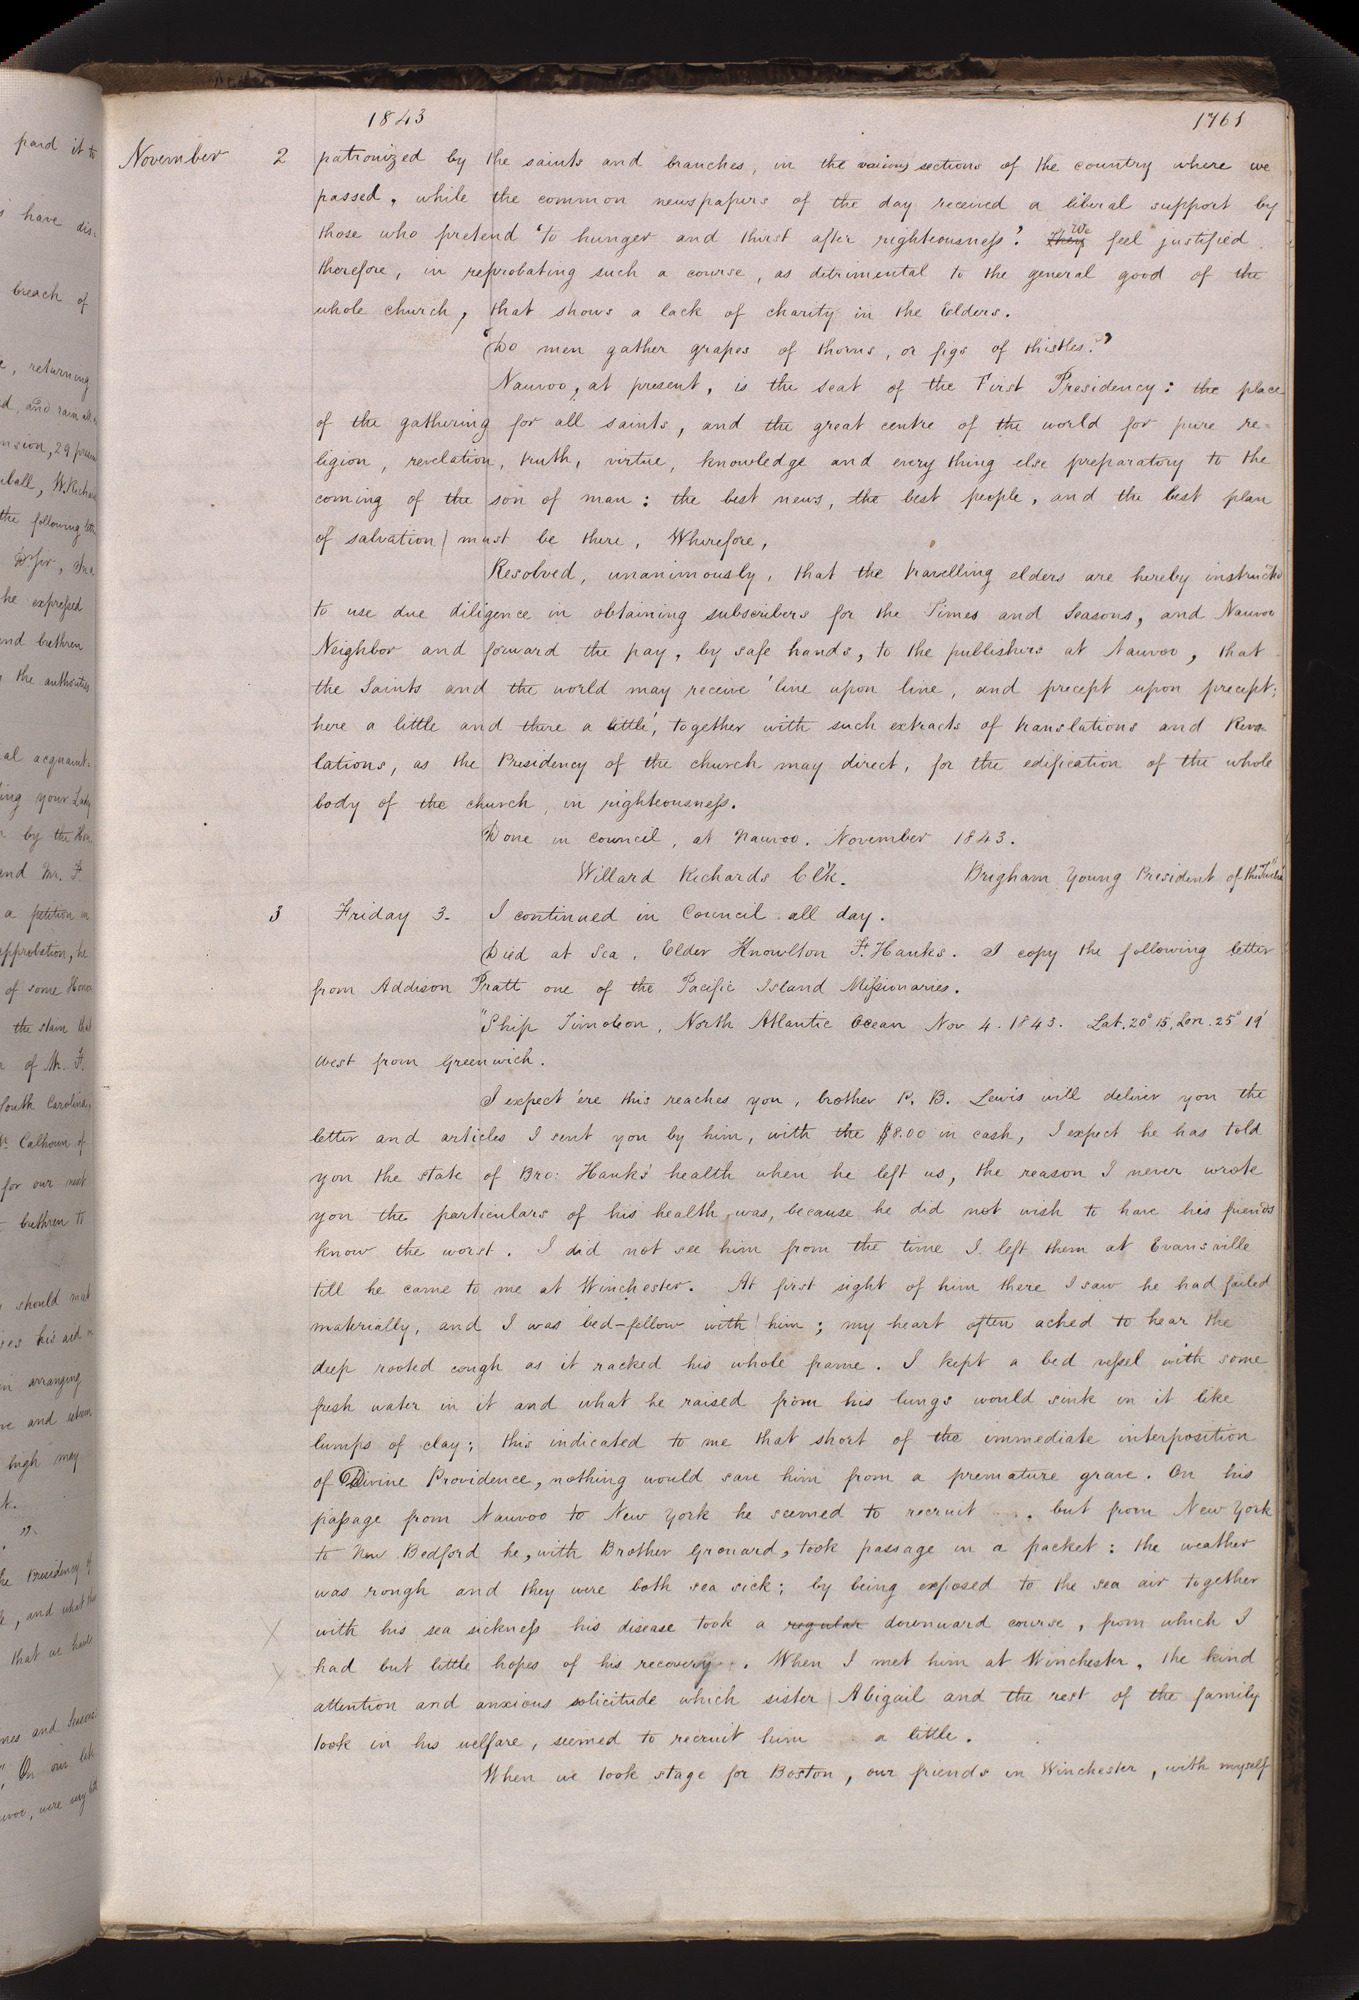 1843 1761
November 2 patronized by the saints and branches, in the various sections of the country where we
passed, while the common newspapers of the day received a liberal support by
those who pretend 'to hunger and thirst after righteousness?' They We feel justified
therefore, in reprobating such a course, as detrimental to the general good of the
whole church, that shows a lack of charity in the Elders.
'Do men gather grapes of thorns, or figs of thistles?'
Nauvoo, at present, is the seat of the First Presidency: the place
of the gathering for all saints, and the great centre of the world for pure re-
ligion, revelation, truth, virtue, knowledge and every thing else preparatory to the
coming of the son of man: the best news, the best people, and the best plan
of salvation must be there, Wherefore,
Resolved, unanimously, that the travelling elders are hereby instructed
to use due diligence in obtaining subscribers for the Times and Seasons, and Nauvoo
Neighbor and forward the pay, by safe hands, to the publishers at Nauvoo, that
the Saints and the world may receive 'line upon line, and precept upon precept;
here a little and there a little', together with such extracts of translations and Reve-
lations, as the Presidency of the church may direct, for the edification of the whole
body of the church, in righteousness.
Done in council, at Nauvoo. November 1843.
Willard Richards Clk. Brigham Young President of the Twelve"
3 Friday 3. I continued in Council all day.
Died at Sea, Elder Knowlton F. Hanks. I copy the following letter
from Addison Pratt one of the Pacific Island Missionaries.
"Ship Timoleon, North Atlantic Ocean Nov 4. 1843. Lat. 20° 15', Lon. 25° 19'
West from Greenwich.
I expect 'ere this reaches you, brother P. B. Lewis will deliver you the
letter and articles I sent you by him, with the $8.00 in cash, I expect he has told
you the state of Bro: Hanks' health when he left us, the reason I never wrote
you the particulars of his health, was, because he did not wish to have his friends
know the worst. I did not see him from the time I left them at Evansville
till he came to me at Winchester. At first sight of him there I saw he had failed
materially, and I was bed-fellow with him; my heart often ached to hear the
deep rooted cough as it racked his whole frame. I kept a bed vessel with some
fresh water in it and what he raised from his lungs would sink in it like
lumps of clay; this indicated to me that short of the immediate interposition
of Divine Providence, nothing would save him from a premature grave. On his
passage from Nauvoo to New York he seemed to recruit . . . but from New York
to New Bedford he, with Brother Grouard, took passage in a packet: the weather
was rough and they were both sea sick; by being exposed to the sea air together
with his sea sickness his disease took a regular downward course, from which I
had but little hopes of his recovery. When I met him at Winchester, the kind
attention and anxious solicitude which sister Abigail and the rest of the family
took in his welfare, seemed to recruit him a little.
When we took stage for Boston, our friends in Winchester, with myself